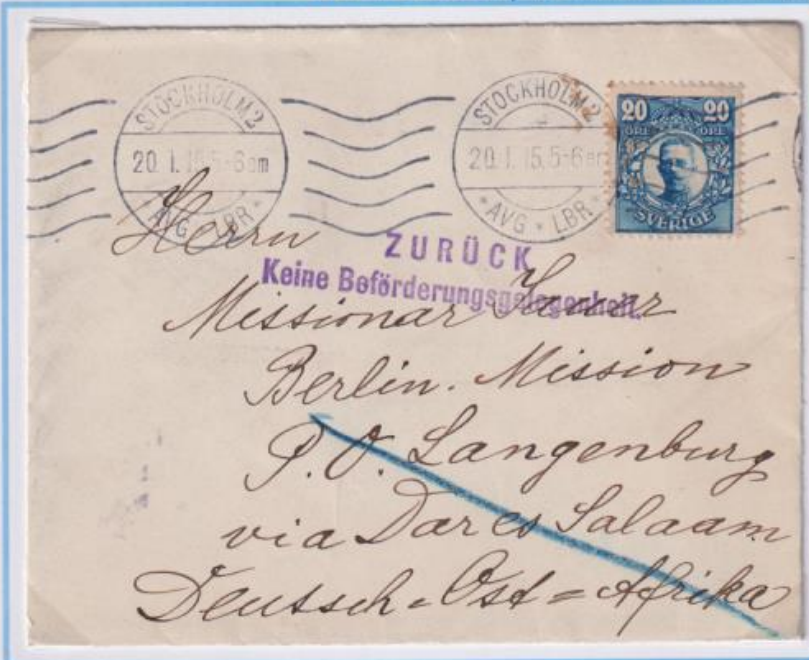 STOCKHOLM 2
20. 1. 15. 5-6 em
* AVG * LBR *
STOCKHOLM 2
20. 1. 15. 5-6 em
* AVG * LBR *
20 20
ÖRE ÖRE
SVERIGE
Herrn
ZURÜCK
Keine Beförderungsgelegenheit.
Missionar
Berlin. Mission
P.O. Langenburg
via Dar es Salaam
Deutsch=Ost=Afrika